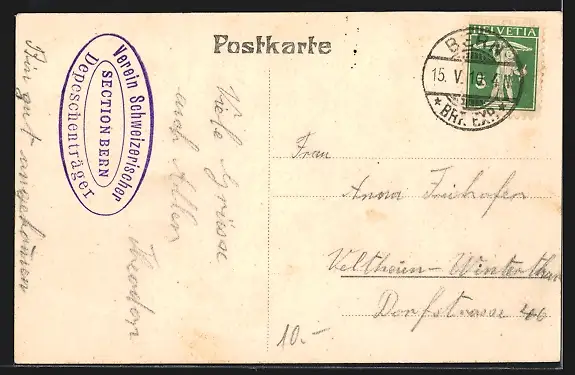 Postkarte
HELVETIA
BERN
15. V. 10. 4
BRF. EXP.
Verein Schweizerischer
SECTION BERN
Depeschenträger
Bin gut angekommen
Viele Grüsse
auch Allen
Theodor
Frau
Anna Freihofer
Veltheim-Winterthur
Dorfstrasse
10.-